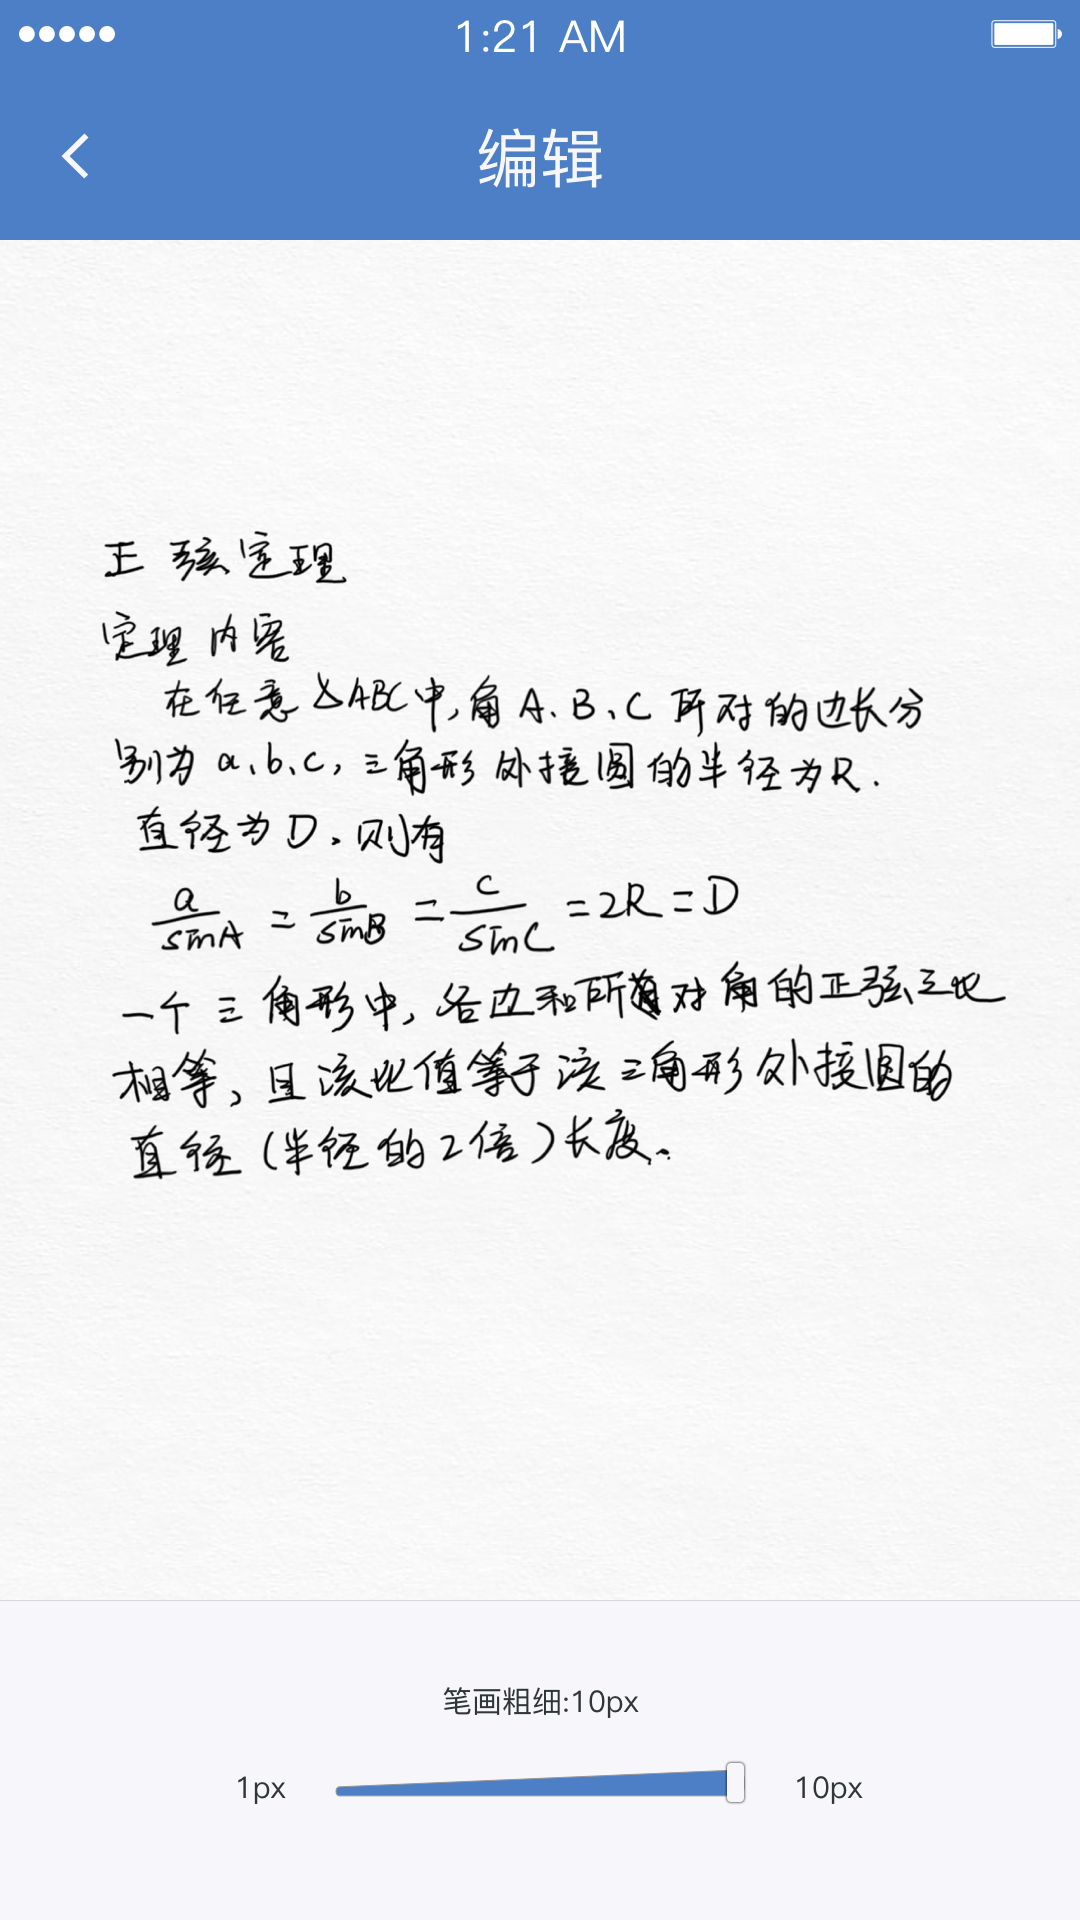 1:21 AM
编辑
正弦定理
定理内容
在任意△ABC中,角A、B、C所对的边长分
别为a、b、c,三角形外接圆的半径为R.
直径为D.则有
a/sinA = b/sinB = c/sinC = 2R = D
一个三角形中,各边和所对角的正弦之比
相等,且该比值等于该三角形外接圆的
直径(半径的2倍)长度.
笔画粗细:10px
1px 10px